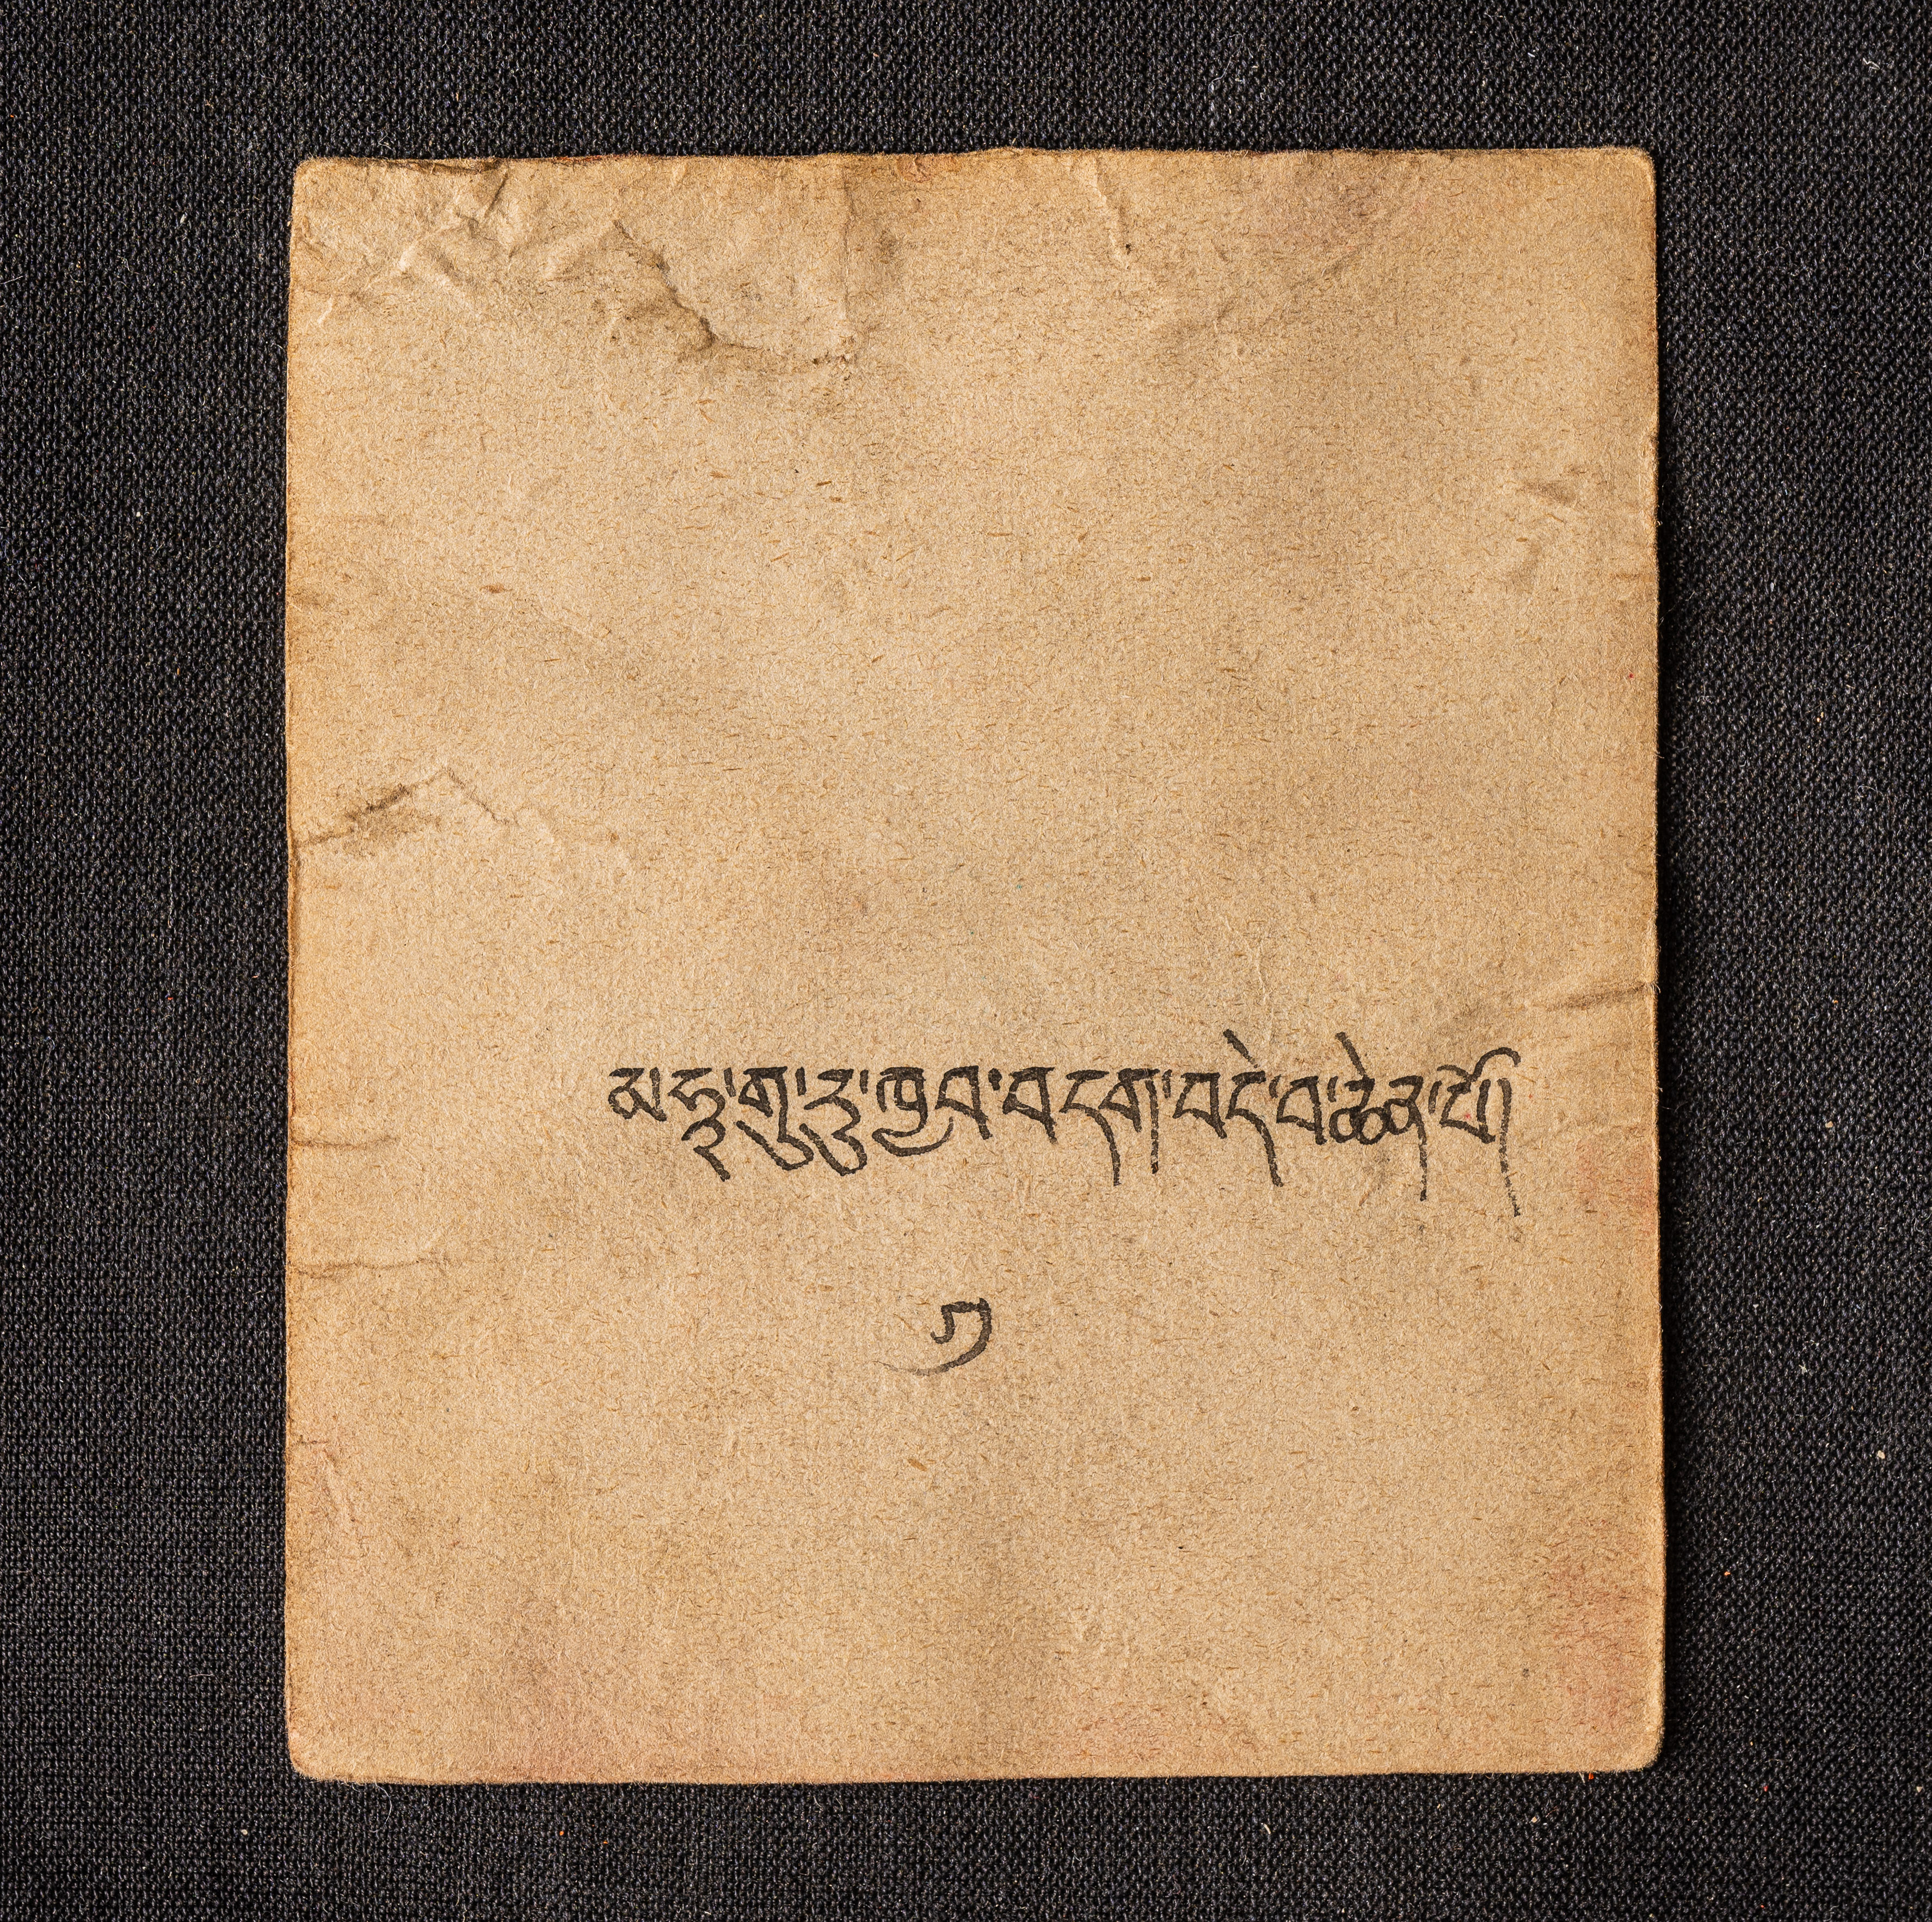 མ་ཧཱ་གུ་རུ་ཁྱབ་བདག་བདེ་བ་ཆེན་པོ།
༡